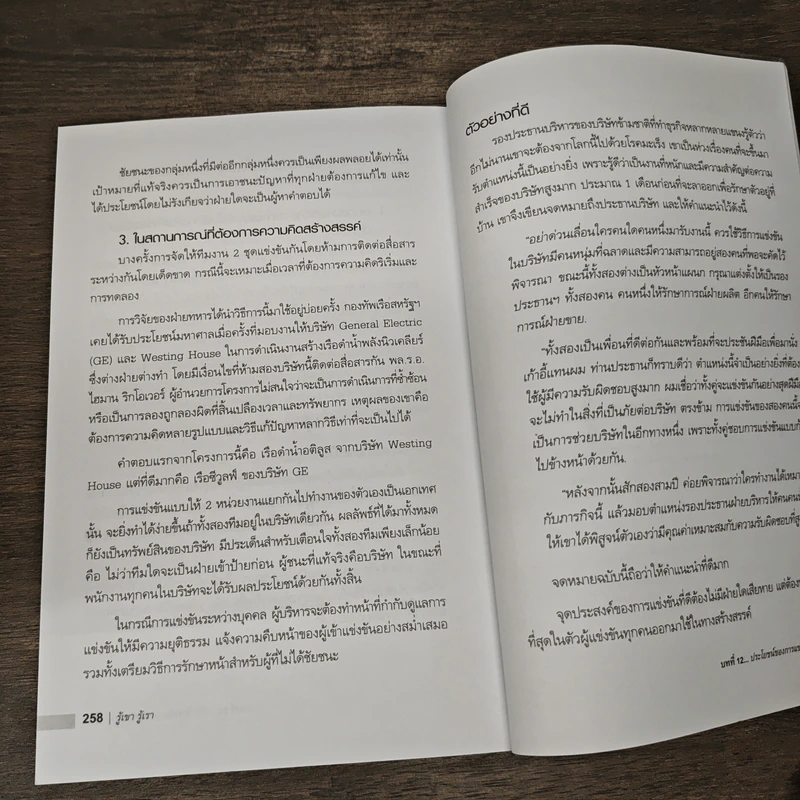 ชัยชนะของกลุ่มหนึ่งที่มีต่ออีกกลุ่มหนึ่งควรเป็นเพียงผลพลอยได้เท่านั้น
เป้าหมายที่แท้จริงควรเป็นการเอาชนะปัญหาที่ทุกฝ่ายต้องการแก้ไข และ
ได้ประโยชน์โดยไม่รังเกียจว่าฝ่ายใดจะเป็นผู้หาคำตอบได้
3. ในสถานการณ์ที่ต้องการความคิดสร้างสรรค์
บางครั้งการจัดให้ทีมงาน 2 ชุดแข่งขันกันโดยห้ามการติดต่อสื่อสาร
ระหว่างกันโดยเด็ดขาด กรณีนี้จะเหมาะเมื่อเวลาที่ต้องการความคิดริเริ่มและ
การทดลอง
การวิจัยของฝ่ายทหารได้นำวิธีการนี้มาใช้อยู่บ่อยครั้ง กองทัพเรือสหรัฐฯ
เคยได้รับประโยชน์มหาศาลเมื่อครั้งที่มอบงานให้บริษัท General Electric
(GE) และ Westing House ในการดำเนินงานสร้างเรือดำน้ำพลังนิวเคลียร์
ซึ่งต่างฝ่ายต่างทำ โดยมีเงื่อนไขที่ห้ามสองบริษัทนี้ติดต่อสื่อสารกัน พล.ร.อ.
ไฮมาน ริกโอเวอร์ ผู้อำนวยการโครงการไม่สนใจว่าจะเป็นการดำเนินการที่ซ้ำซ้อน
หรือเป็นการลองถูกลองผิดที่สิ้นเปลืองเวลาและทรัพยากร เหตุผลของเขาคือ
ต้องการความคิดหลายรูปแบบและวิธีแก้ปัญหาหลากวิธีเท่าที่จะเป็นไปได้
คำตอบแรกจากโครงการนี้คือ เรือดำน้ำอติลูส จากบริษัท Westing
House แต่ที่ดีมากคือ เรือซีวูลฟ์ ของบริษัท GE
การแข่งขันแบบให้ 2 หน่วยงานแยกกันไปทำงานของตัวเองเป็นเอกเทศ
นั้น จะยิ่งทำได้ง่ายขึ้นถ้าทั้งสองทีมอยู่ในบริษัทเดียวกัน ผลลัพธ์ที่ได้มาทั้งหมด
ก็ยังเป็นทรัพย์สินของบริษัท มีประเด็นสำหรับเตือนใจทั้งสองทีมเพียงเล็กน้อย
คือ ไม่ว่าทีมใดจะเป็นฝ่ายเข้าป้ายก่อน ผู้ชนะที่แท้จริงคือบริษัท ในขณะที่
พนักงานทุกคนในบริษัทจะได้รับผลประโยชน์ด้วยกันทั้งสิ้น
ในกรณีการแข่งขันระหว่างบุคคล ผู้บริหารจะต้องทำหน้าที่กำกับดูแลการ
แข่งขันให้มีความยุติธรรม แจ้งความคืบหน้าของผู้เข้าแข่งขันอย่างสม่ำเสมอ
รวมทั้งเตรียมวิธีการรักษาหน้าสำหรับผู้ที่ไม่ได้ชัยชนะ
258 | รู้เขา รู้เรา
ตัวอย่างที่ดี
รองประธานบริหารของบริษัทข้ามชาติที่ทำธุรกิจหลากหลายแขนงรู้ตัวว่า
อีกไม่นานเขาจะต้องจากโลกนี้ไปด้วยโรคมะเร็ง เขาเป็นห่วงเรื่องคนที่จะขึ้นมา
รับตำแหน่งนี้เป็นอย่างยิ่ง เพราะรู้ดีว่าเป็นงานที่หนักและมีความสำคัญต่อความ
สำเร็จของบริษัทสูงมาก ประมาณ 1 เดือนก่อนที่จะลาออกเพื่อรักษาตัวอยู่ที่
บ้าน เขาจึงเขียนจดหมายถึงประธานบริษัท และให้คำแนะนำไว้ดังนี้
"อย่าด่วนเลื่อนใครคนใดคนหนึ่งมารับงานนี้ ควรใช้วิธีการแข่งขัน
ในบริษัทมีคนหนุ่มที่ฉลาดและมีความสามารถอยู่สองคนที่พอจะคัดไว้
พิจารณา ขณะนี้ทั้งสองต่างเป็นหัวหน้าแผนก กรุณาแต่งตั้งให้เป็นรอง
ประธานฯ ทั้งสองคน คนหนึ่งให้รักษาการณ์ฝ่ายผลิต อีกคนให้รักษา
การณ์ฝ่ายขาย.
"ทั้งสองเป็นเพื่อนที่ดีต่อกันและพร้อมที่จะประชันฝีมือเพื่อมานั่ง
เก้าอี้แทนผม ท่านประธานก็ทราบดีว่า ตำแหน่งนี้จำเป็นอย่างยิ่งที่ต้อง
ใช้ผู้มีความรับผิดชอบสูงมาก ผมเชื่อว่าทั้งคู่จะแข่งขันกันอย่างสุดฝีมือ
จะไม่ทำในสิ่งที่เป็นภัยต่อบริษัท ตรงข้าม การแข่งขันของสองคนนี้
เป็นการช่วยบริษัทในอีกทางหนึ่ง เพราะทั้งคู่ชอบการแข่งขันแบบ
ไปข้างหน้าด้วยกัน.
"หลังจากนั้นสักสองสามปี ค่อยพิจารณาว่าใครทำงานได้
กับภารกิจนี้ แล้วมอบตำแหน่งรองประธานฝ่ายบริหารให้คน
ให้เขาได้พิสูจน์ตัวเองว่ามีคุณค่าเหมาะสมกับความรับผิดชอบ
จดหมายฉบับนี้ถือว่าให้คำแนะนำที่ดีมาก
จุดประสงค์ของการแข่งขันที่ดีต้องไม่มีฝ่ายใดเสียหาย แต่ต้อง
ที่สุดในตัวผู้แข่งขันทุกคนออกมาใช้ในทางสร้างสรรค์
บทที่ 12... ประโยชน์ของการ